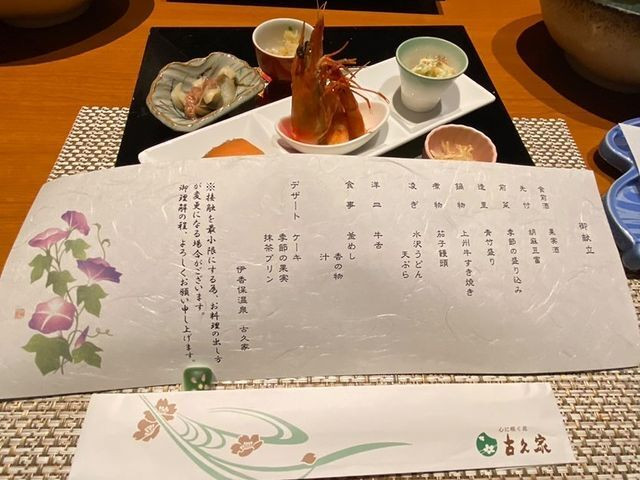 御献立
食前酒　果実酒
先付　胡麻豆富
前菜　季節の盛り込み
造里　青竹盛り
鍋物　上州牛すき焼き
煮物　茄子饅頭
凌ぎ　水沢うどん
天ぷら
洋皿　牛舌
食事　釜めし
香の物
汁
デザート　ケーキ
季節の果実
抹茶プリン
伊香保温泉　古久家
※接触を最小限にする為、お料理の出し方
が変更になる場合がございます。
御理解の程、よろしくお願い申し上げます。
心に咲く花
古久家